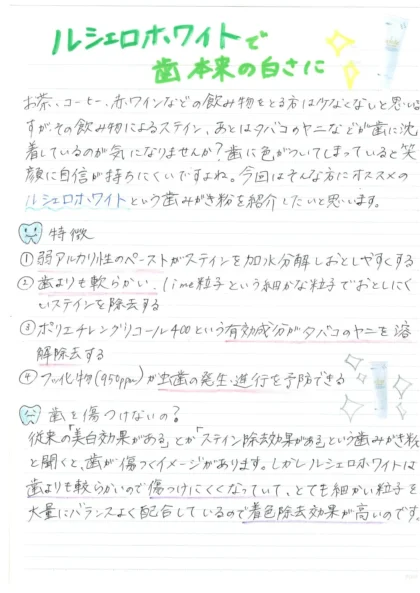 ルシェロホワイトで
歯本来の白さに
お茶、コーヒー、赤ワインなどの飲み物をとる方は少なくないと思いま
すが、その飲み物によるステイン、あとはタバコのヤニなどが歯に沈
着しているのが気になりませんか？歯に色がついてしまっていると笑
顔に自信が持ちにくいですよね。今回はそんな方にオススメの
ルシェロホワイトという歯みがき粉を紹介したいと思います。
特徴
①弱アルカリ性のペーストがステインを加水分解しおとしやすくする
②歯よりも軟らかい、lime粒子という細かな粒子でおとしにく
いステインを除去する
③ポリエチレングリコール400という有効成分がタバコのヤニを溶
解除去する
④フッ化物(950ppm)が虫歯の発生・進行を予防できる
歯を傷つけないの？
従来の「美白効果がある」とか「ステイン除去効果がある」という歯みがき粉
と聞くと、歯が傷つくイメージがあります。しかしルシェロホワイトは
歯よりも軟らかいので傷つけにくくなっていて、とても細かい粒子を
大量にバランスよく配合しているので着色除去効果が高いのです。